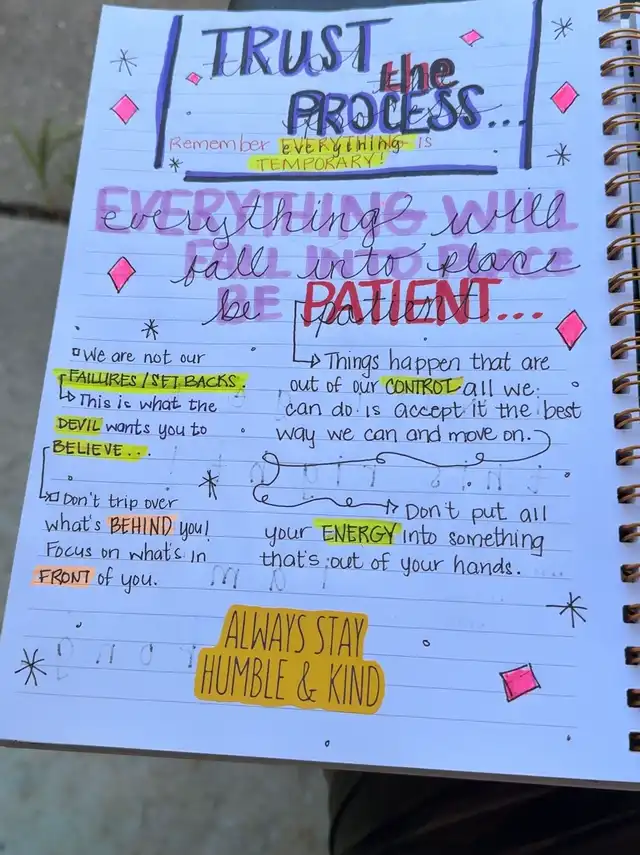 TRUST
the
PROCESS...
Remember EVERYTHING is
TEMPORARY!
EVERYTHING WILL
everything will
FALL INTO PLACE
fall into place
BE PATIENT...
be patient
▫We are not our
FAILURES/SET BACKS.
↳ This is what the
DEVIL wants you to
BELIEVE...
▫Don't trip over
what's BEHIND you!
Focus on what's in
FRONT of you.
Things happen that are
out of our CONTROL all we
can do is accept it the best
way we can and move on.
Don't put all
your ENERGY into something
that's out of your hands.
ALWAYS STAY
HUMBLE & KIND